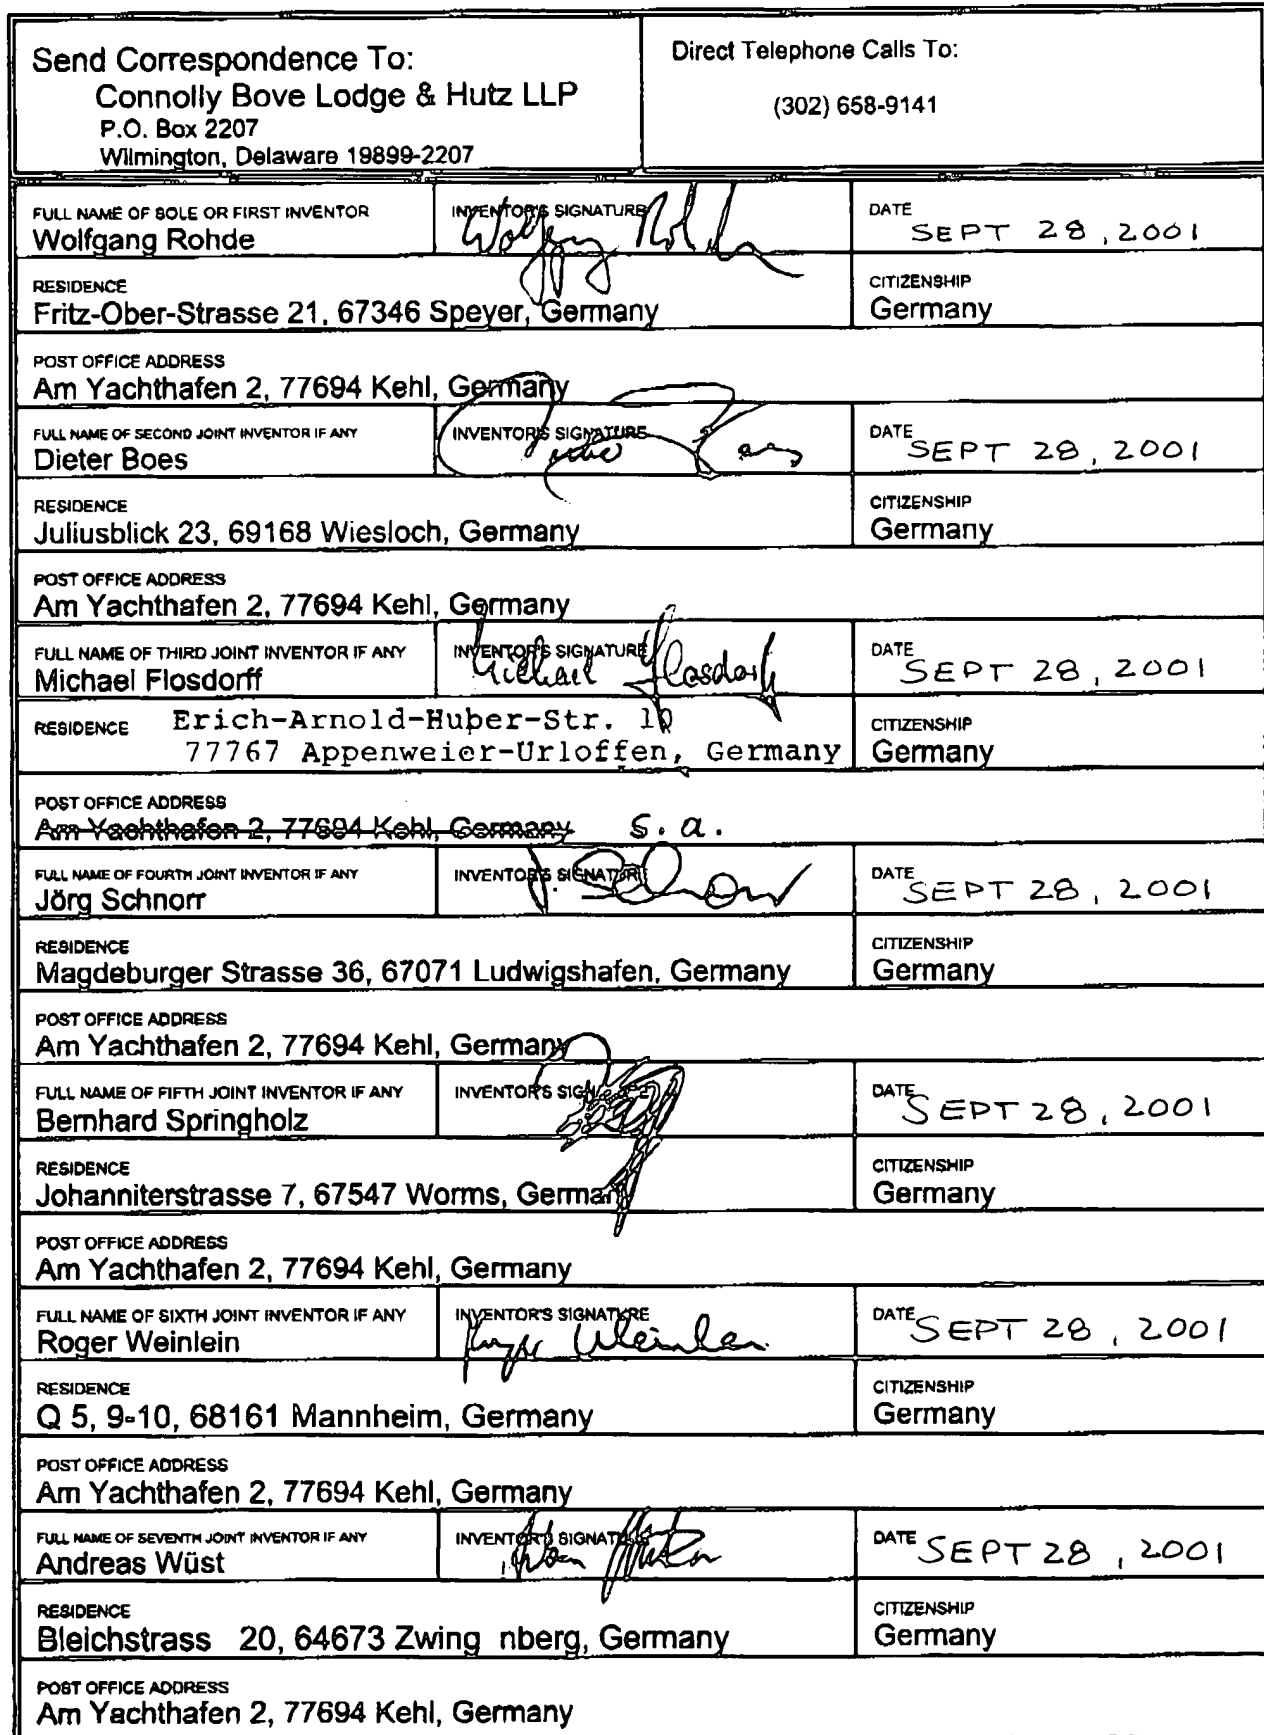 Send Correspondence To:
Connolly Bove Lodge & Hutz LLP
P.O. Box 2207
Wilmington, Delaware 19899-2207
Direct Telephone Calls To:
(302) 658-9141
FULL NAME OF SOLE OR FIRST INVENTOR
Wolfgang Rohde
INVENTOR'S SIGNATURE
Wolfgang Rohde
DATE
SEPT 28, 2001
RESIDENCE
Fritz-Ober-Strasse 21, 67346 Speyer, Germany
CITIZENSHIP
Germany
POST OFFICE ADDRESS
Am Yachthafen 2, 77694 Kehl, Germany
FULL NAME OF SECOND JOINT INVENTOR IF ANY
Dieter Boes
INVENTOR'S SIGNATURE
DATE
SEPT 28, 2001
RESIDENCE
Juliusblick 23, 69168 Wiesloch, Germany
CITIZENSHIP
Germany
POST OFFICE ADDRESS
Am Yachthafen 2, 77694 Kehl, Germany
FULL NAME OF THIRD JOINT INVENTOR IF ANY
Michael Flosdorff
INVENTOR'S SIGNATURE
Michael Flosdorff
DATE
SEPT 28, 2001
RESIDENCE Erich-Arnold-Huber-Str. 10
77767 Appenweier-Urloffen, Germany
CITIZENSHIP
Germany
POST OFFICE ADDRESS
Am Yachthafen 2, 77694 Kehl, Germany s.a.
FULL NAME OF FOURTH JOINT INVENTOR IF ANY
Jörg Schnorr
INVENTOR'S SIGNATURE
J. Schnorr
DATE
SEPT 28, 2001
RESIDENCE
Magdeburger Strasse 36, 67071 Ludwigshafen, Germany
CITIZENSHIP
Germany
POST OFFICE ADDRESS
Am Yachthafen 2, 77694 Kehl, Germany
FULL NAME OF FIFTH JOINT INVENTOR IF ANY
Bernhard Springholz
INVENTOR'S SIGNATURE
DATE
SEPT 28, 2001
RESIDENCE
Johanniterstrasse 7, 67547 Worms, Germany
CITIZENSHIP
Germany
POST OFFICE ADDRESS
Am Yachthafen 2, 77694 Kehl, Germany
FULL NAME OF SIXTH JOINT INVENTOR IF ANY
Roger Weinlein
INVENTOR'S SIGNATURE
Roger Weinlein
DATE
SEPT 28, 2001
RESIDENCE
Q 5, 9-10, 68161 Mannheim, Germany
CITIZENSHIP
Germany
POST OFFICE ADDRESS
Am Yachthafen 2, 77694 Kehl, Germany
FULL NAME OF SEVENTH JOINT INVENTOR IF ANY
Andreas Wüst
INVENTOR'S SIGNATURE
DATE
SEPT 28, 2001
RESIDENCE
Bleichstrass 20, 64673 Zwing nberg, Germany
CITIZENSHIP
Germany
POST OFFICE ADDRESS
Am Yachthafen 2, 77694 Kehl, Germany